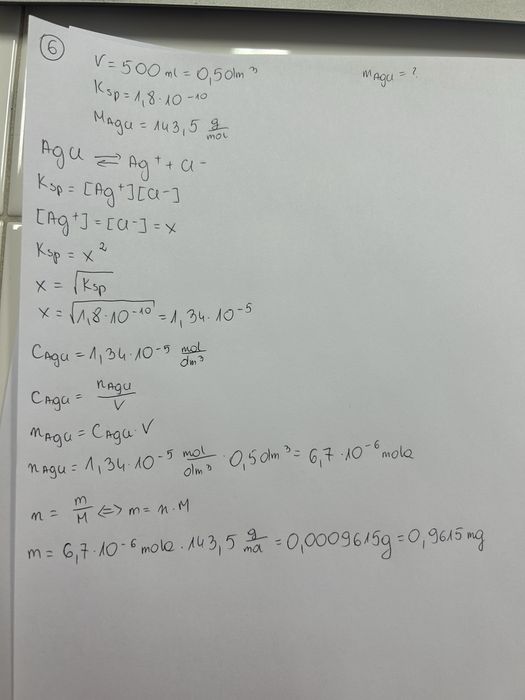 6
V = 500 ml = 0,50 dm³
m AgCl = ?
Ksp = 1,8 · 10⁻¹⁰
M AgCl = 143,5 g/mol
AgCl ⇌ Ag⁺ + Cl⁻
Ksp = [Ag⁺][Cl⁻]
[Ag⁺] = [Cl⁻] = x
Ksp = x²
x = √Ksp
x = √1,8 · 10⁻¹⁰ = 1,34 · 10⁻⁵
C AgCl = 1,34 · 10⁻⁵ mol/dm³
C AgCl = n AgCl/V
n AgCl = C AgCl · V
n AgCl = 1,34 · 10⁻⁵ mol/dm³ · 0,50 dm³ = 6,7 · 10⁻⁶ mola
n = m/M ⇔ m = n · M
m = 6,7 · 10⁻⁶ mola · 143,5 g/mol = 0,0009615g = 0,9615 mg